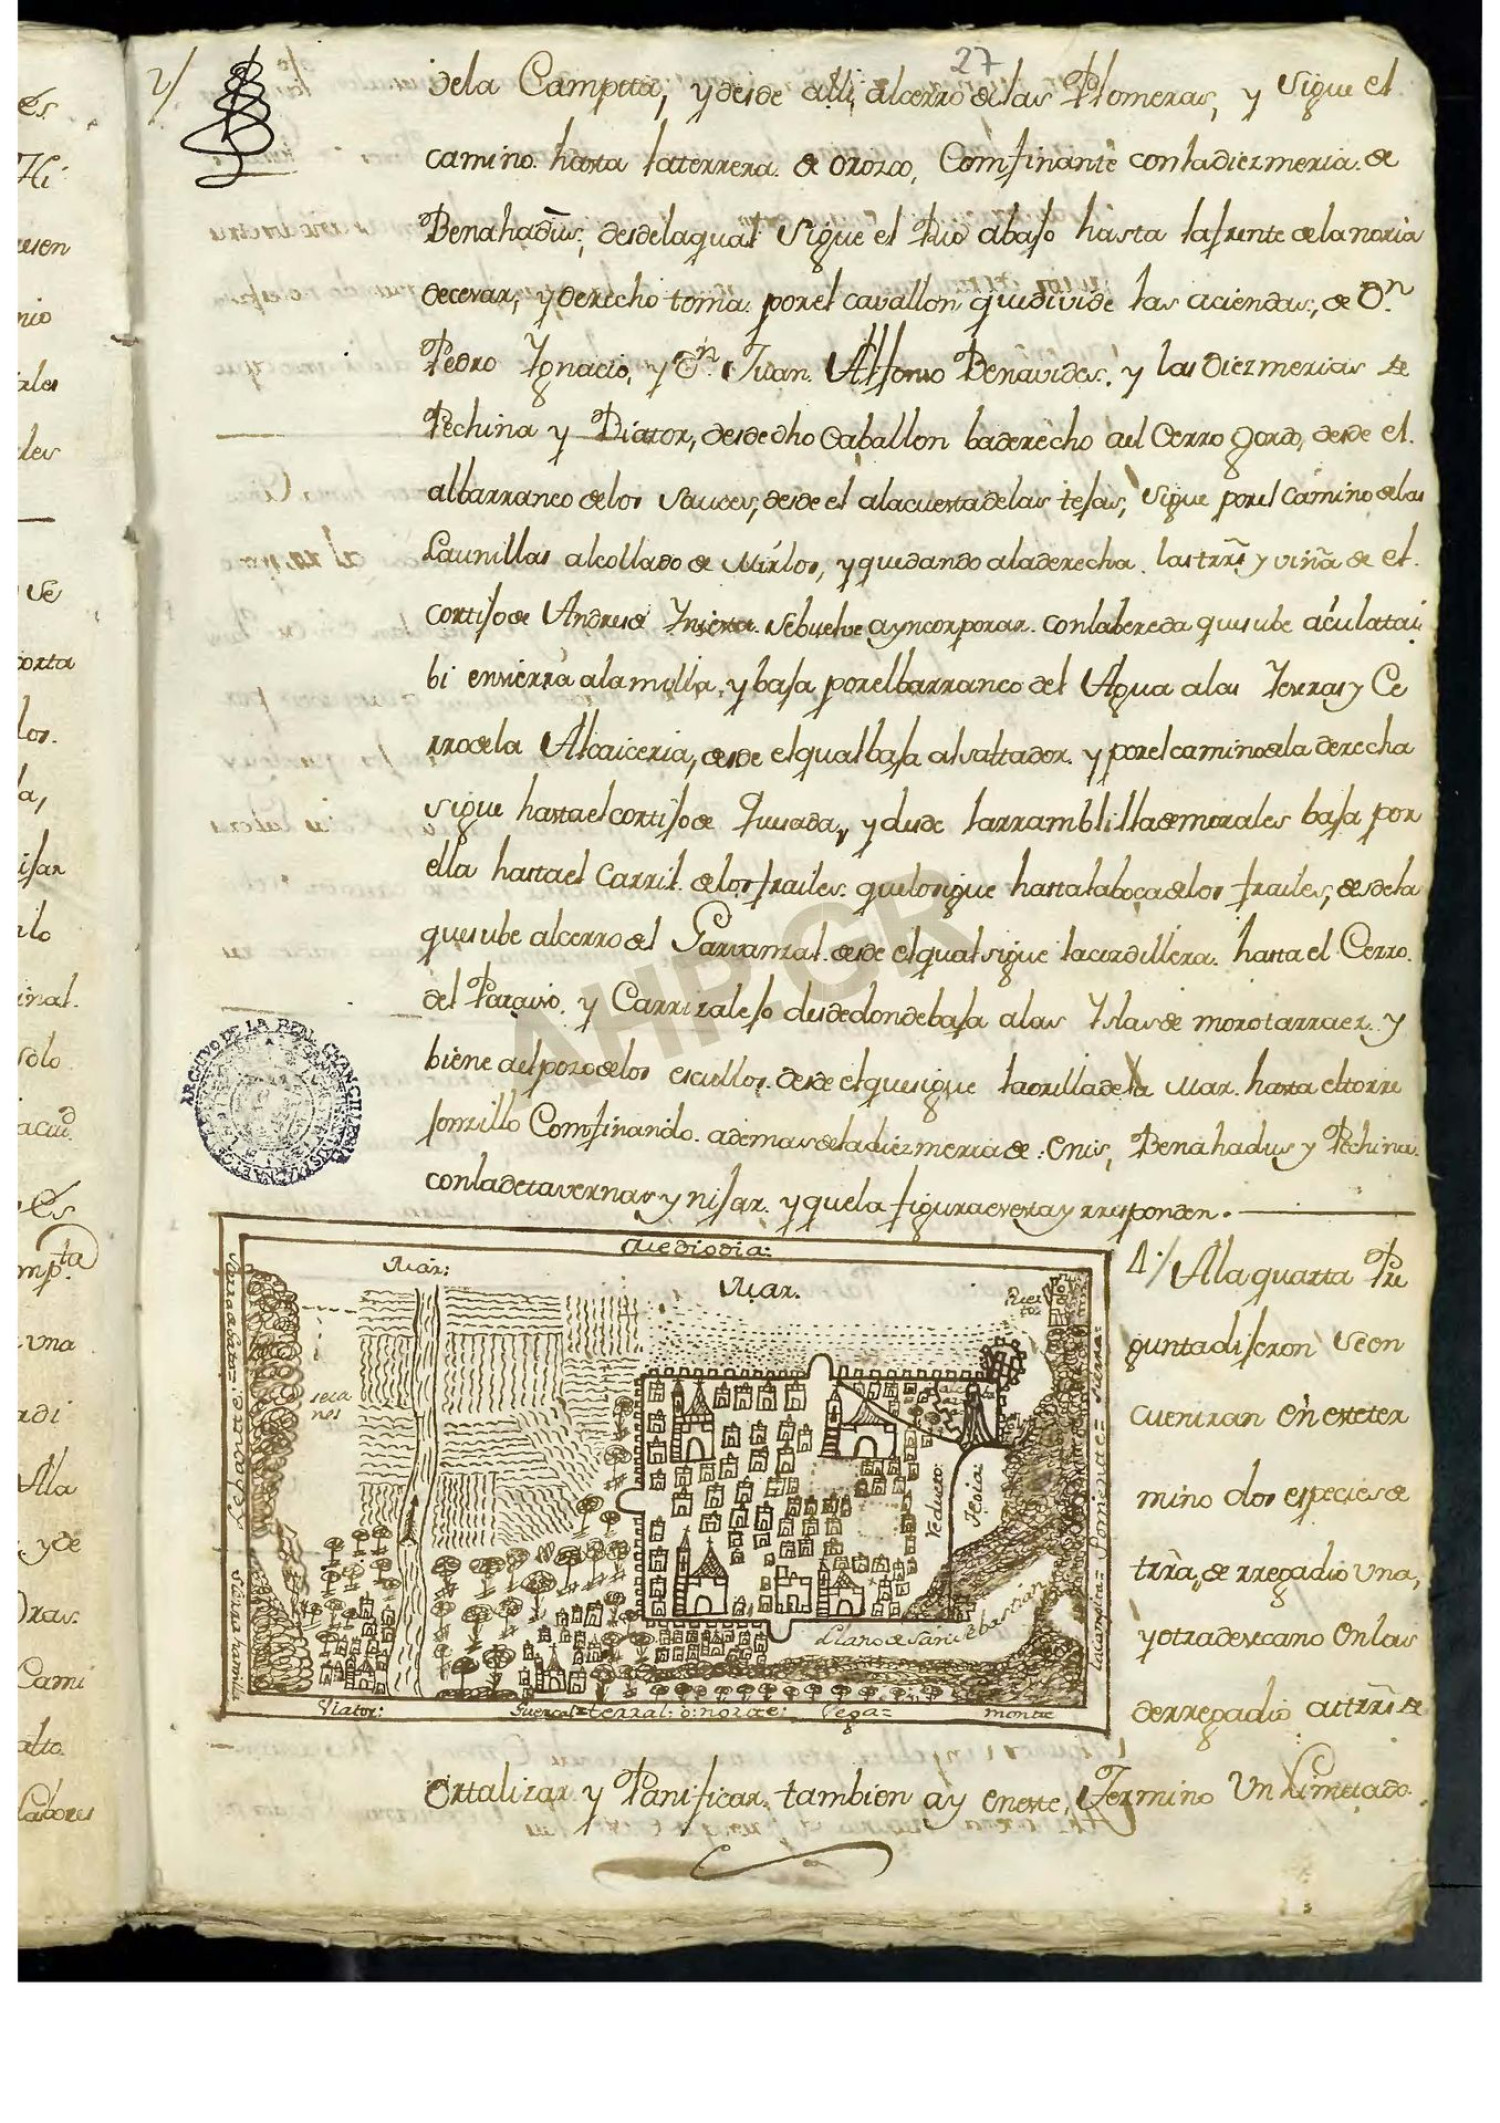 27
2/
dela Campita, y desde alli, alcerro delas Plomeras, y sigue el
camino. hasta laterrera. de orozco, Comfinante conladiezmeria. de
Benahadus, desdelaqual sigue el Rio abajo hasta lafuente delanoria
decevar, y derecho toma. porel cavallon quedivide las aciendas, de Dn
Pedro Ygnacio, y Dn. Juan. Alfonso Benavides. y las Diezmerias de
Pechina y Biator, desdedho Caballon baderecho ael Cerro Gordo, desde el.
albarranco delos Sauces, desde el alacuesta delas tejas, sigue porel camino delas
Launillas alcollado de Mirlos, y quedando aladerecha. las trrs y viña de el.
cortijo de Andres sebuelve ayncorporar. conlabereda quesube aculatai
bi ensierra alamilla, y baja porelbarranco del Agua alas Yeseras y Ce
rrodela Alcaiceria, desde elqualbaja alsaltador. y porelcaminodela derecha
sigue hastaelcortijode Quesada, y desde larramblilla demorales baja por
ella hastael Carril. delosfrailes. quelosigue hastalabocadelos frailes, desdela
quesube alcerro del Garvanzal. desde elqualsigue lacordillera. hasta el Cerro.
del Paraiso. y Carrizalejo desdedondebaja alas Yslas de morotarraez. y
biene aelpozodelos escullos. desde elquesigue laorilladela Mar. hasta eltorre
jonzillo Comfinando. ademasdeladiezmeria de: Enis, Benahadus y Pechina.
conladetavernas y nijar. y quela figura es esta y rresponden.
Mediodia:
Mar:
Mar.
Puer
to:
seca
nos
Reducto
Joia:
Llano de San Sebastian
Sierra
Poniente
Sierra hamilla
Viator:
Guercal
terral: o: norte:
Vega
monte
4./ Ala quarta Pre
gunta dijeron se en
cuentran en este ter
mino dos especies de
trra, de rregadio una,
y otra desecano en las
derregadio ai trrs de
ortalizar y Panificar. tambien ay eneste, Termino Un Limitado.
ARCHIVO DE LA REAL CHANCILLERIA
AHPGR